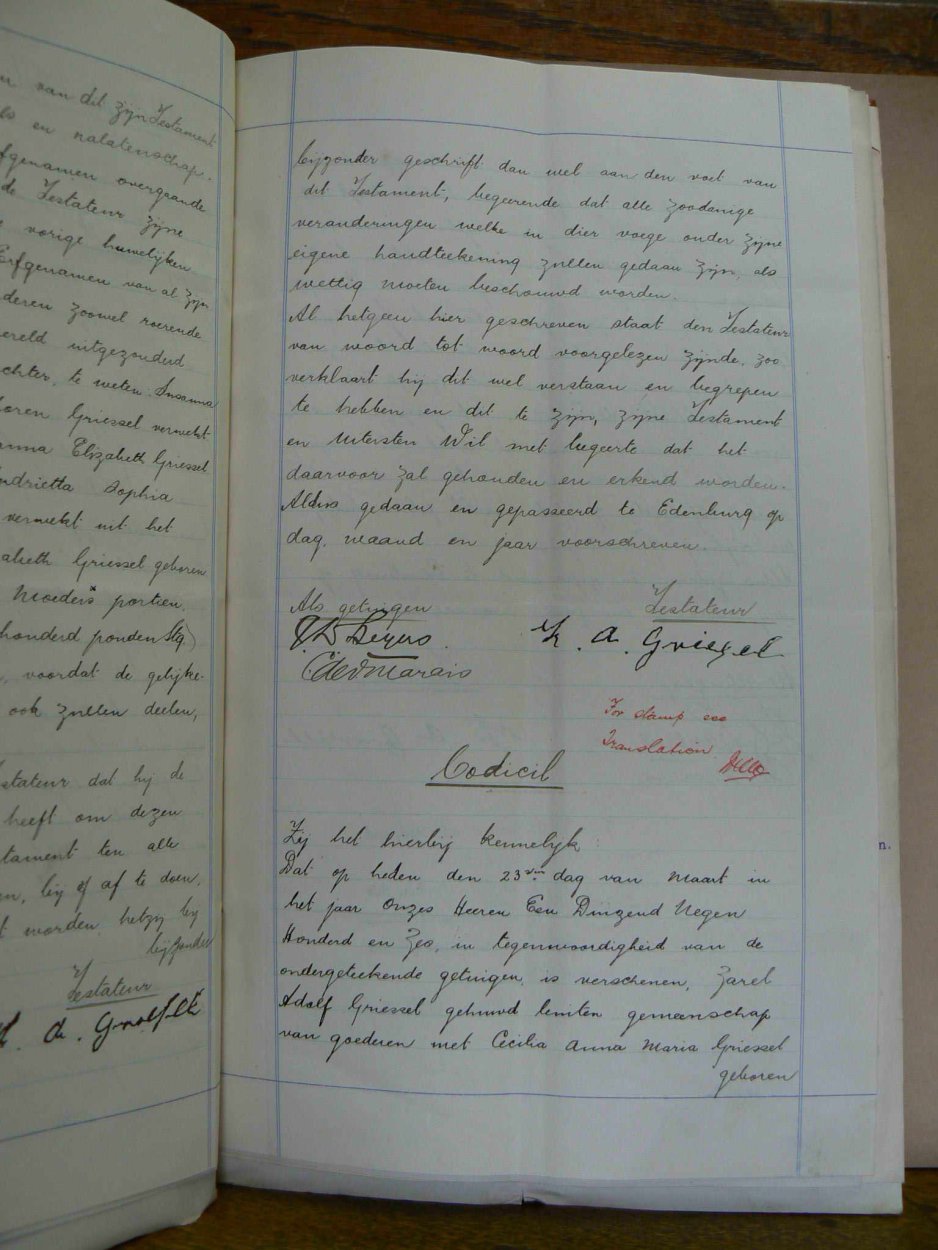 van dit zijn Testament
en nalatenschap.
erfgenamen overgaande
de Testateur zijne
vorige huwelijken
Erfgenamen van al zijn
deren zoowel roerende
ereld uitgezonderd
chter, te weten: Susanna
oren Griessel verwekt
anna Elizabeth Griessel
ndrietta Sophia
verwekt uit het
zabeth Griessel geboren
Moeders portien.
honderd ponden Stg)
voordat de gelijke-
ook zullen deelen,
stateur dat hij de
heeft om dezen
tament ten alle
bij of af te doen.
worden hetzij bij
bijzonder
Testateur
bijzonder geschrift dan wel aan den voet van
dit Testament, begeerende dat alle zoodanige
veranderingen welke in dier voege onder zijne
eigene handteekening zullen gedaan zijn, als
wettig moeten beschouwd worden.
Al hetgeen hier geschreven staat den Testateur
van woord tot woord voorgelezen zijnde, zoo
verklaart hij dit wel verstaan en begrepen
te hebben en dit te zijn, zijne Testament
en Uitersten Wil met begeerte dat het
daarvoor zal gehouden en erkend worden.
Aldus gedaan en gepasseerd te Edenburg op
dag, maand en jaar voorschreven.
Als getuigen
Testateur
A. Griezel
For stamp see
Translation
Codicil
Zij het hierbij kennelijk:
Dat op heden den 23sten dag van Maart in
het jaar Onzes Heeren Een Duizend Negen
Honderd en Zes, in tegenwoordigheid van de
ondergeteekende getuigen, is verschenen, Zarel
Adolf Griessel gehuwd buiten gemeenschap
van goederen met Cecilia Anna Maria Griessel
geboren
n.